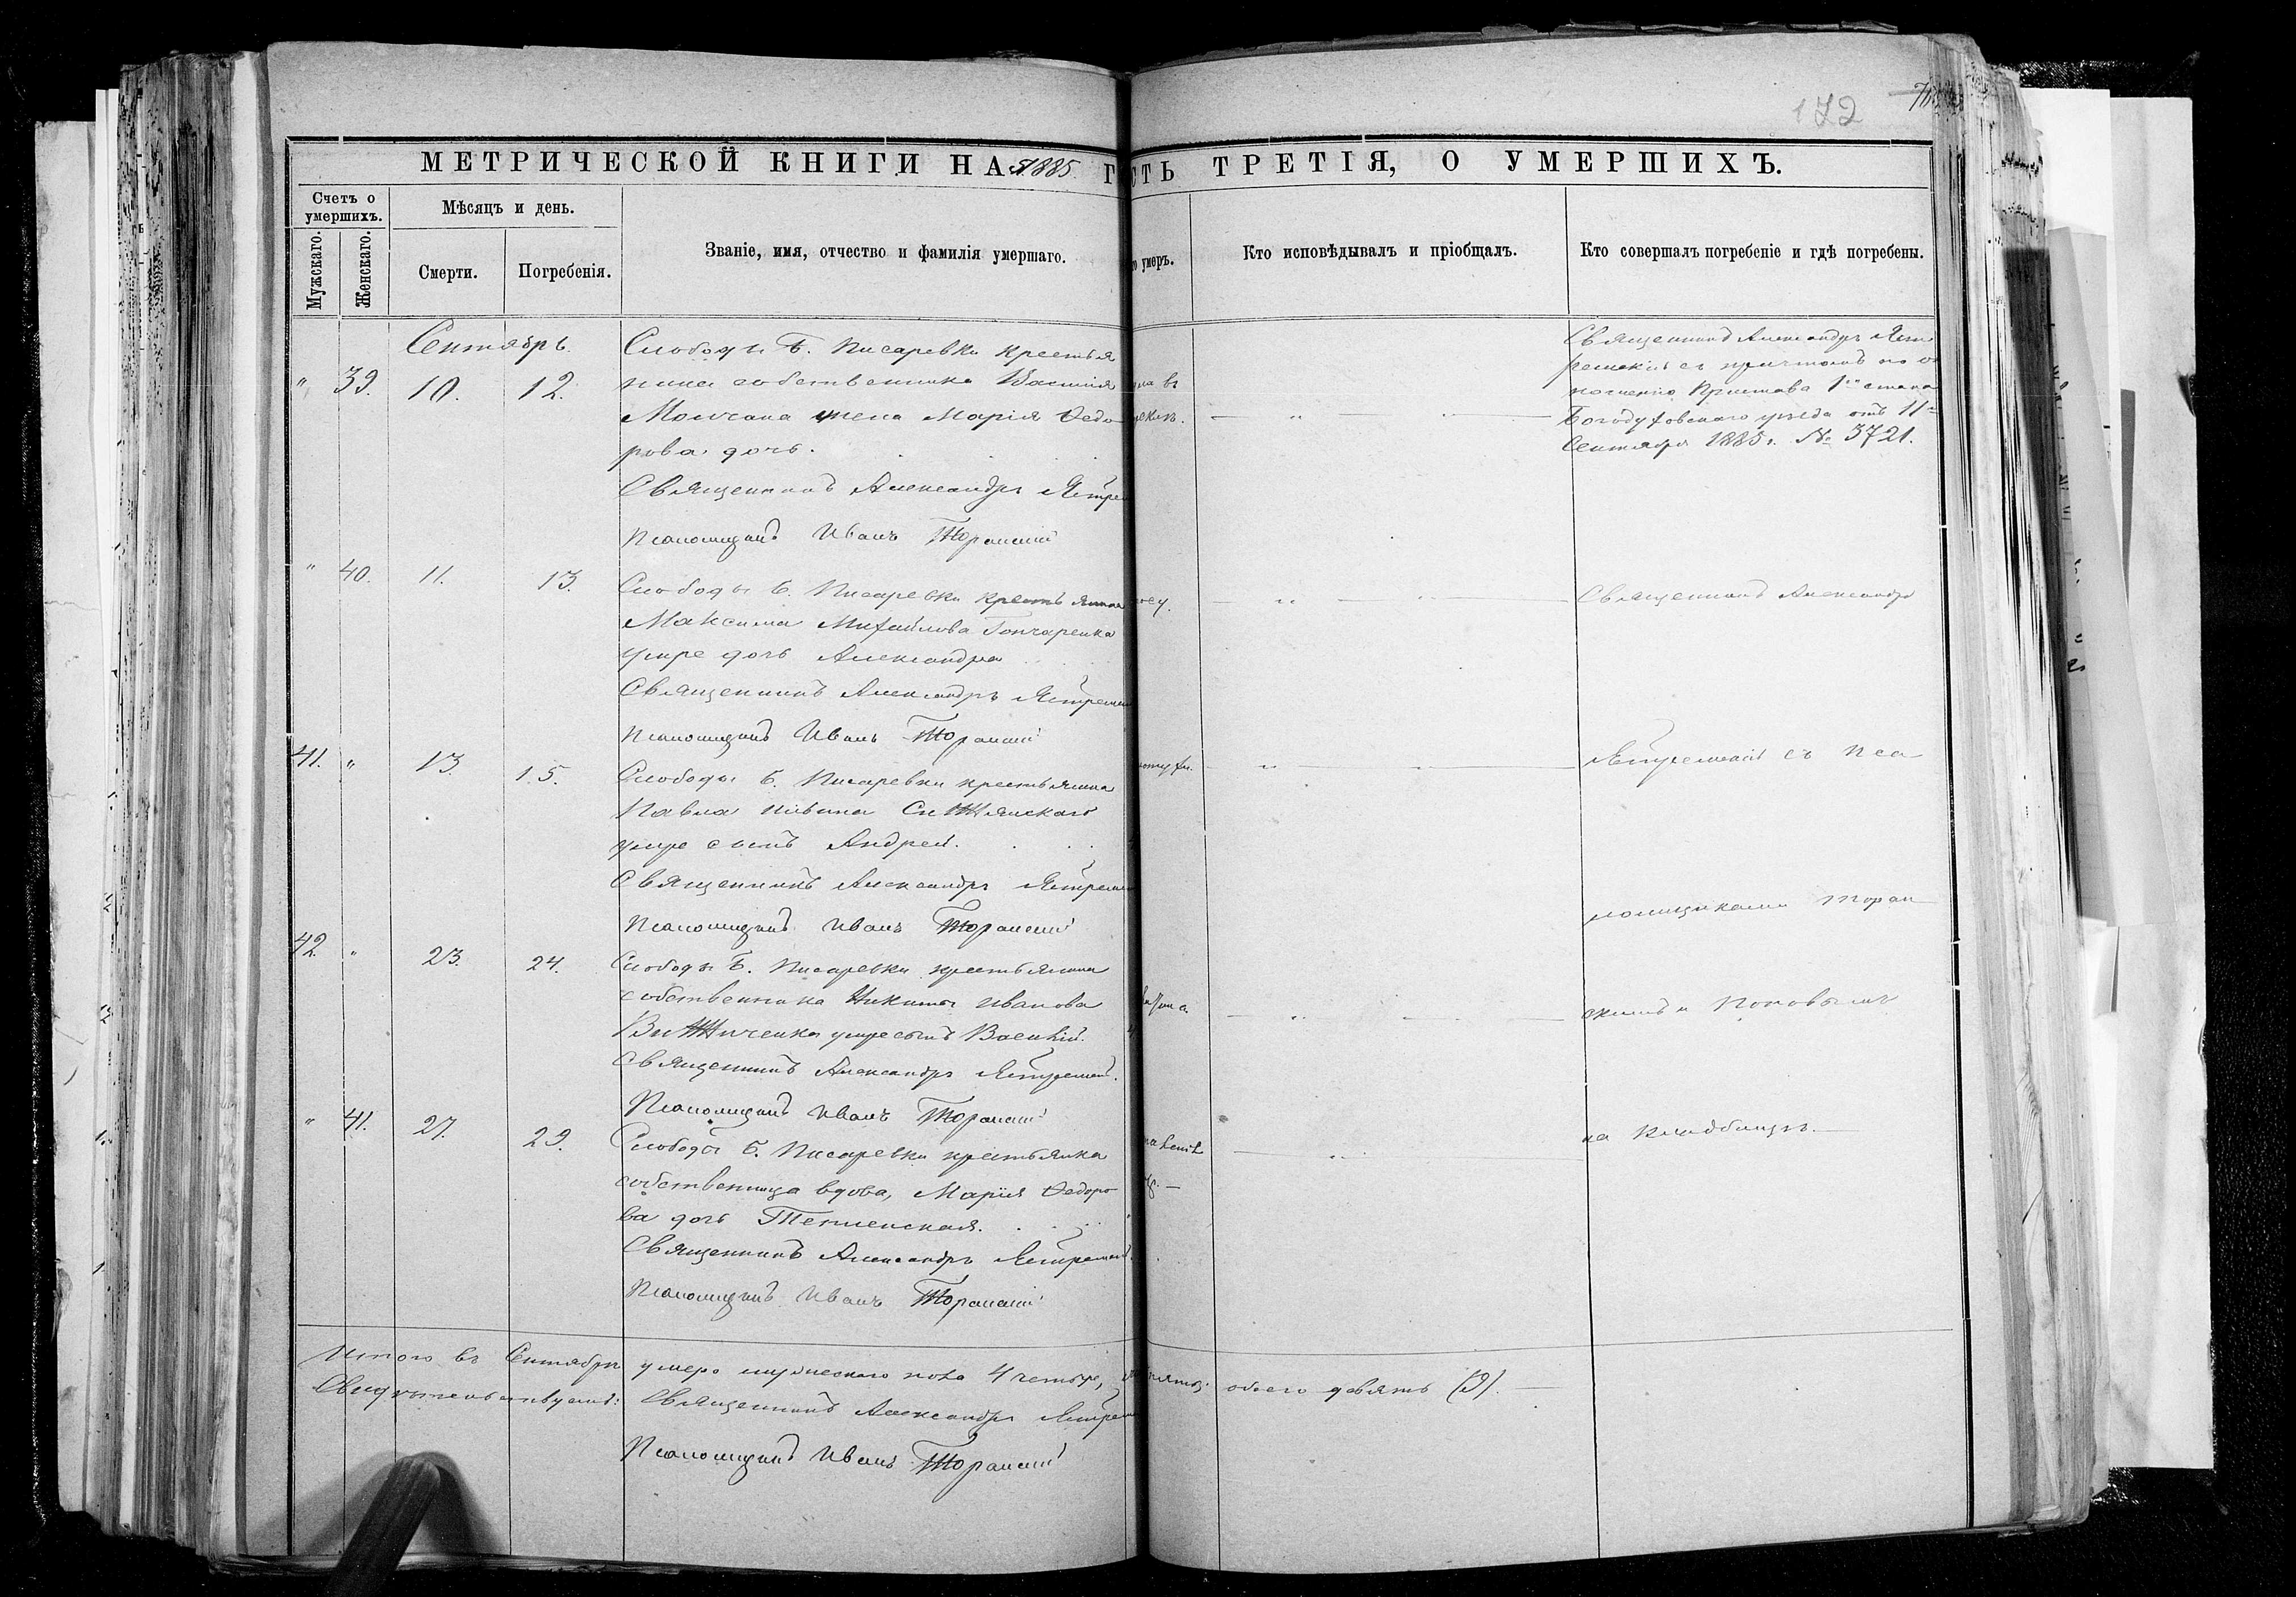 172
МЕТРИЧЕСКОЙ КНИГИ НА 1885 Г
СТЬ ТРЕТІЯ, О УМЕРШИХЪ.
Счетъ о умершихъ.
Мужскаго.
Женскаго.
Мѣсяцъ и день.
Смерти.
Погребенія.
Званіе, имя, отчество и фамилія умершаго.
о умеръ.
Кто исповѣдывалъ и пріобщалъ.
Кто совершалъ погребеніе и гдѣ погребены.
Сентябрь.
" 39. 10. 12.
Слободы Б. Писаревки крестья
нина собственника
Молчана жена Марія Ѳедо
рова дочь.
Священникъ Александръ
Псаломщикъ Иванъ Торанскій
Священникъ Александръ
с причтомъ по
Пристава 1го стана
Богодуховскаго уѣзда отъ 11го
Сентября 1885 г. № 3721.
" 40. 11. 13.
Слободы Б. Писаревки крестьянина
Максима Михайлова Гончаренка
умре дочь Александра
Священникъ Александръ
Псаломщикъ Иванъ Торанскій
Священникъ Александръ
41. " 13. 15.
Слободы Б. Писаревки крестьянина
Павла
умре сынъ Андрей.
Священникъ Александръ
Псаломщикъ Иванъ Торанскій
съ Пса
ломщиками Торан
42. " 23. 24.
Слободы Б. Писаревки крестьянина
собственника Никиты Иванова
умре сынъ Василій.
Священникъ Александръ
Псаломщикъ Иванъ Торанскій
скимъ и Поповымъ
" 41. 27. 29.
Слободы Б. Писаревки крестьянка
собственница вдова, Марія Ѳедоро
ва дочь Тепленская.
Священникъ Александръ
Псаломщикъ Иванъ Торанскій
на Кладбищѣ.
Итого въ Сентябрѣ умерло мужескаго пола 4 четыре,
обоего девять (9).
Свидѣтельствуютъ: Священникъ Александръ
Псаломщикъ Иванъ Торанскій